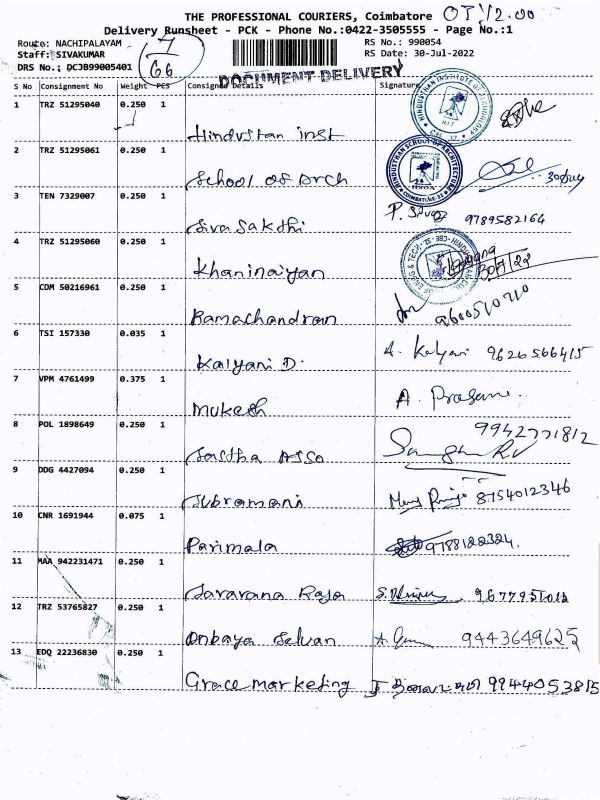 THE PROFESSIONAL COURIERS, Coimbatore
Delivery Runsheet - PCK - Phone No.:0422-3505555 - Page No.:1
Route: NACHIPALAYAM 7 RS No.: 990054
Staff: SIVAKUMAR 66 RS Date: 30-Jul-2022
DRS No.; DCJB99005401
DOCUMENT DELIVERY
S No Consignment No Weight PCS Consignee Details Signature
1 TRZ 51295040 0.250 1 Hindustan inst
2 TRZ 51295061 0.250 1 School of Arch
3 TEN 7329007 0.250 1 Sivasakthi 9789582164
4 TRZ 51295060 0.250 1 Khaninaiyan 30/7/22
5 CDM 50216961 0.250 1 Ramachandran 9600510710
6 TSI 157330 0.035 1 Kalyani D. A. Kalyani 9626566415
7 VPM 4761499 0.375 1 Mukesh A. Prasanna.
8 POL 1898649 0.250 1 Sastha Asso 9942771812
9 DDG 4427094 0.250 1 Subramani 8754012346
10 CNR 1691944 0.075 1 Parimala 9788122324.
11 MAA 942231471 0.250 1 Saravana Raja
12 TRZ 53765827 0.250 1 Anbaya Selvan 9443649625
13 EDQ 22236830 0.250 1 Grace marketing 9944053815